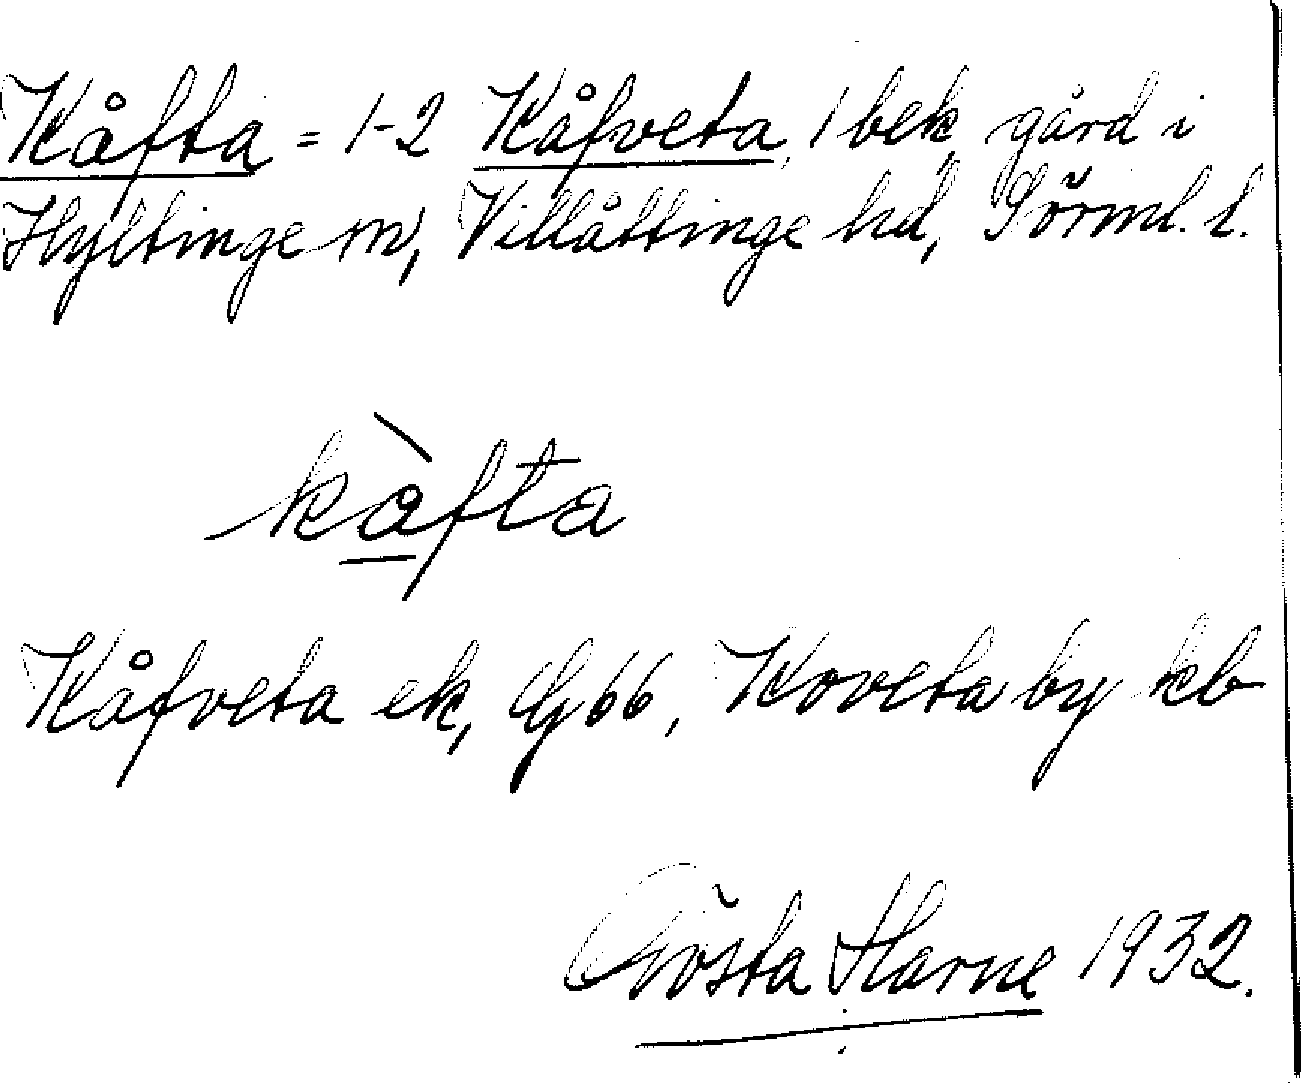 Kåfta = 1-2 Kåfveta, 1 bek gård i
Hyltinge sn, Villåttinge hd, Sörml. l.
kå̀fta
Kåfveta ek, G66, Koveta by kb
Gösta Harne 1932.